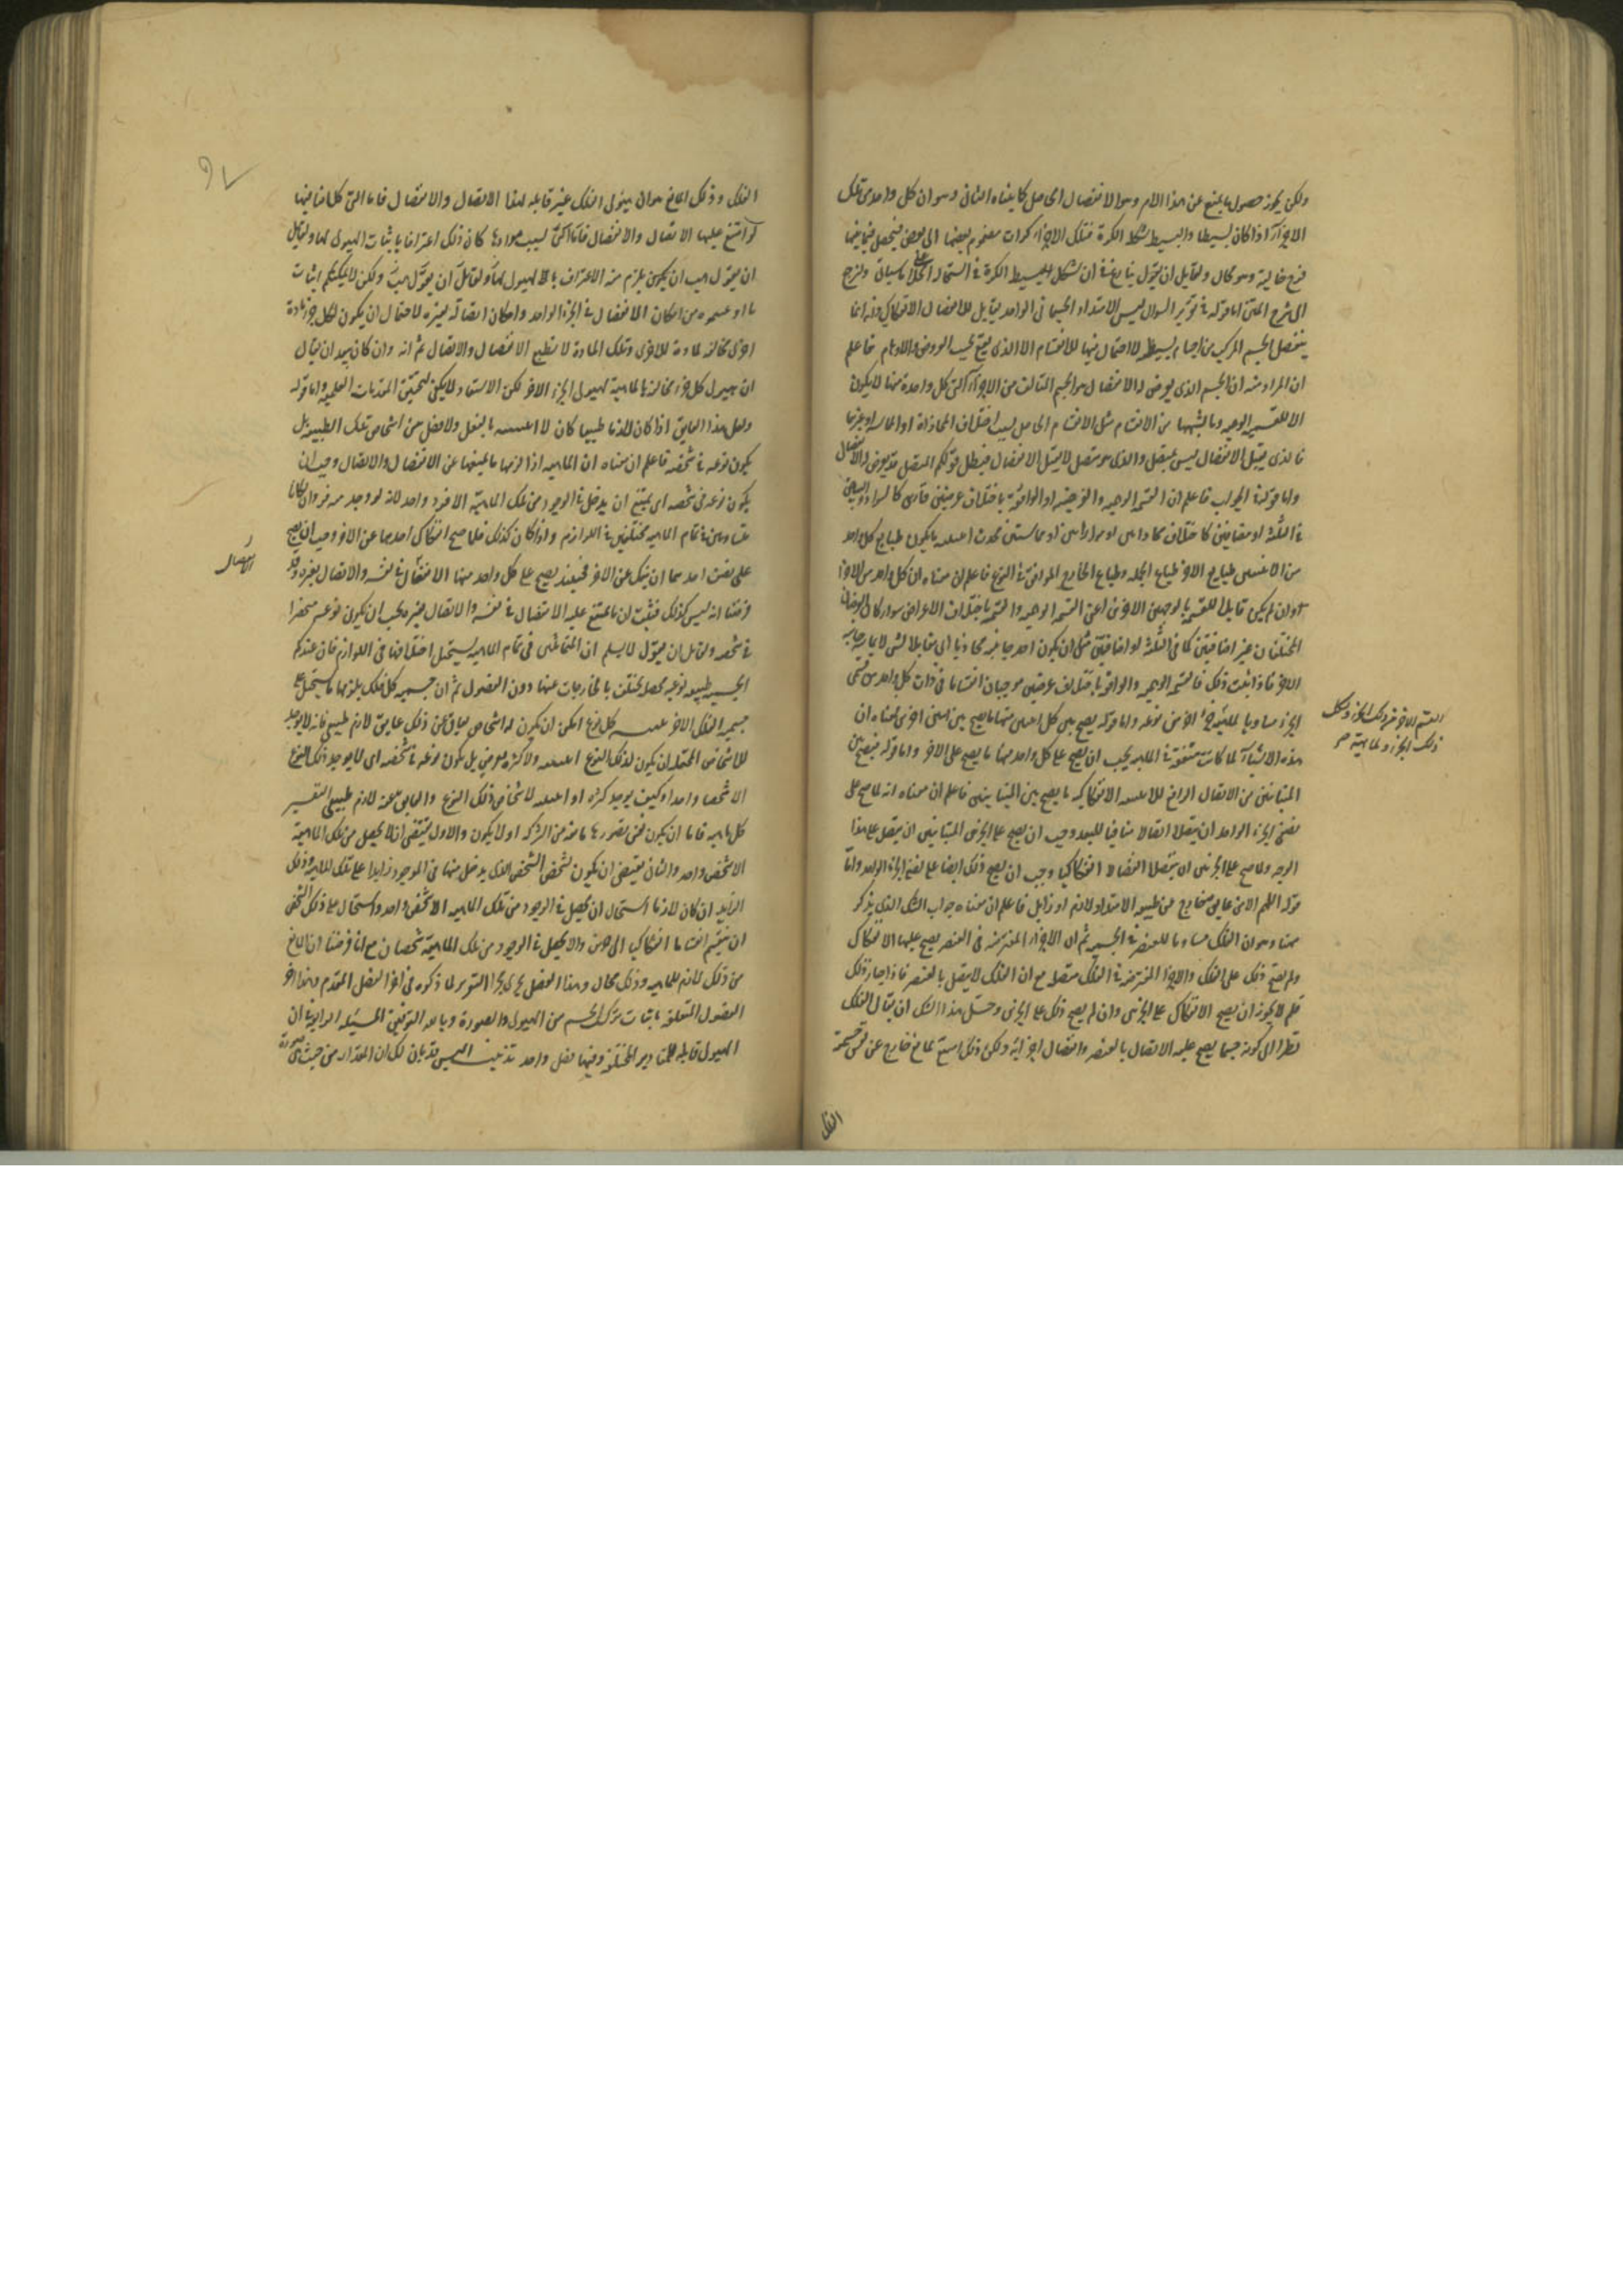 ولكن يجوز حصول ما يمنع عن هذا اللازم وهو الانفصال الحاصل كما بيناه الثاني وهو ان كل واحد من تلك
الاجزاء اذا كان بسيطا والبسيط شكله الكرة فتلك الاجزاء كرات مضموم بعضها الى بعض فيحصل فيما بينها
فرج خالية وهو محال ولقايل ان يقول ينازع في ان شكل البسيط الكرة في استحالة الخلاء على ما سياتي ولنرجع
الى شرح المتن اما قوله في تقرير السوال ليس الامتداد الجسماني الواحد بقابل للانفصال الانفكاكي فانه انما
ينفصل الجسم المركب من اجسام بسيطة لا احتمال فيها للانقسام الا الذي يقع بحسب الفروض والاوهام فاعلم
ان المراد منه ان الجسم الذي يعرض له الانفصال هو الجسم المتالف من الاجزاء التي كل واحدة منها لا يكون
الا للقسمة الوهمية وما يشبهها من الانقسام مثل الانقسام الحاصل بسبب اختلاف المحاذاة او المماسة او غيرهما
فالذي يقبل الانفصال ليس بمتصل والذي هو متصل لا يقبل الانفصال فبطل قولكم المتصل قد يعرض له الانفصال
واما قوله في الجواب فاعلم ان القسمة الوهمية والفرضية او الواقعة باختلاف عرضين قارين كالسواد والبياض
في البلقة او مضافين كاختلاف محاذاتين او موازاتين او مماستين تحدث اثنينية ما يكون طباع كل واحد
من الاثنين طباع الاخر وطباع الجملة وطباع الخارج الموافق في النوع فاعلم ان معناه ان كل واحد من الاجزاء
وان لم يكن قابلا للقسمة بالوجهين الاخرين اعني القسمة الوهمية والقسمة باختلاف الاعراض سواء كان العرضان
المختلفان غير اضافيين كما في البلقة او اضافيين مثل ان يكون احد جانبيه محاذيا او مقابلا لشي لا يحاذيه جانبه
الاخر فاذا ثبت ذلك فالقسمة الوهمية والواقعة باختلاف عرضين موجبان انقساما في ذات كل واحد من قسمي
الجزء مساويا لطبيعة الجزء الاخر في نوعه واما قوله يصح بين كل اثنين منها ما يصح بين اثنين اخرين فمعناه ان
هذه الاشياء لما كانت متفقة في الماهية يجب ان يصح على كل واحد منها ما يصح على الاخر واما قوله فيصح بين
المتباينين من الاتصال الرافع للاثنينية الانفكاكية ما يصح بين المتباينين فاعلم ان معناه انه لما صح على
نصفي الجزء الواحد ان يتصلا اتصالا منافيا للبعد وجب ان يصح على الجزئين المتباينين ان يتصلا على هذا
الوجه ولما صح على الجزئين ان ينفصلا انفصالا انفكاكيا وجب ان يصح ذلك ايضا على نصفي الجزء الواحد واما
قوله اللهم الا من عايق من خارج عن طبيعة الامتداد لازم او زايل فاعلم ان معناه جواب الشك الذي يذكر
هنا وهو ان الفلك مساو للعنصر في الجسمية ثم ان الاجزاء المفترضة في العنصر يصح عليها الانفكاك
ولم يصح ذلك على الفلك والاجزاء المفترضة في الفلك متصلة مع ان الفلك لا يتصل بالعنصر فاذا جاز ذلك
فلم لا يجوز ان يصح الانفكاك على الجزئين وان لم يصح ذلك على الجزئين وحل هذا الشك ان يقال الفلك
نظرا الى كونه جسما يصح عليه الاتصال بالعنصر وانفصال اجزائه ولكن ذلك امتنع لمانع خارج عن نفس جسميته
الفلك
القسم الاخر من ذلك الجزء ولكل
ذلك الجزء ولماهية
الفلك وذلك المانع هو ان هيولى الفلك غير قابلة لهذا الاتصال والانفصال فاما التي كلامنا فيها
لو امتنع عليها الاتصال والانفصال بسبب موادها كان ذلك اعترافا باثبات الهيولى لها ولقايل
ان يقول هب ان يكون يلزم منه الاعتراف بالهيولى لها ولقايل ان يقول هب ولكن لا يمكنكم اثبات
ما ادعيتموه من امكان الانفصال في الجزء الواحد وامكان اتصاله بغيره لاحتمال ان يكون لكل جزء مادة
اخرى مخالفة لمادة الاخرى وتلك المادة لا تطيع الانفصال والاتصال ثم انه وان كان بعيدا ان يقال
ان هيولى كل جزء مخالفة بالماهية لهيولى الجزء الاخر لكن الاستبعاد لا يكفي لتحقيق المقدمات العلمية واما قوله
ولعل هذا العايق اذا كان لازما طبيعيا كان لا اثنينية بالفعل ولا فصل بين اشخاص تلك الطبيعة بل
يكون نوعه في شخصه فاعلم ان معناه ان الماهية اذا لزمها ما يمنعها عن الانفصال والاتصال وجب ان
يكون نوعه في شخصه اي يمتنع ان يدخل في الوجود من تلك الماهية الا فرد واحد لانه لو وجد منه فردان لكانا
متساويين في تمام الماهية مختلفين في اللوازم واذا كان كذلك فلما صح انفكاك احدهما عن الاخر وجب ان يصح
على نصف احدهما ان ينفك عن الاخر فحينئذ يصح على كل واحد منهما الانفصال في نفسه والاتصال بغيره وقد
فرضنا انه ليس كذلك فثبت ان ما يمتنع عليه الانفصال في نفسه والاتصال بغيره يجب ان يكون نوعه منحصرا
في شخصه ولقايل ان يقول لا نسلم ان المتماثلين في تمام الماهية يستحيل اختلافهما في اللوازم فان عندكم
الجسمية طبيعة نوعية محصلة تختلف بالخارجات عنها دون الفصول ثم ان جسمية كل فلك يلزمها ما يستحيل على
جسمية الفلك الاخر كل نوع امكن ان يكون له اشخاص فعاق عن ذلك عايق لازم طبيعي فانه لا يوجد
للاشخاص المحتملة ان يكون لذلك النوع اثنينية ولا كثرة تعرض بل يكون نوعه في شخصه اي لا يوجد ذلك النوع
الا شخصا واحدا وكيف يوجد كثرة او اثنينية لاشخاص ذلك النوع والعايق عنه لازم طبيعي التفسير
كل ماهية فاما ان يكون نفس تصورها مانعة من الشركة او لا يكون والاول يقتضي ان لا يحصل من تلك الماهية
الا شخص واحد والثاني يقتضي ان يكون تشخص الشخص الذي يدخل منها في الوجود زايدا على تلك الماهية وذلك
الزايد ان كان لازما استحال ان يحصل في الوجود من تلك الماهية الا شخص واحد واستحال على ذلك الشخص
ان ينقسم انقساما انفكاكيا الى جزئين والا يحصل في الوجود من تلك الماهية شخصان مع انا فرضنا ان المانع
من ذلك لازم للماهية وذلك محال وهذا الفصل يجري مجرى التقرير لما ذكره في اخر الفصل المتقدم وهذا اخر
الفصول المتعلقة باثبات تركب الجسم من الهيولى والصورة وبالله التوفيق المسئلة الرابعة ان
الهيولى قابلة للمقادير المختلفة وفيها فصل واحد تذنيب اليس قد بان لك ان المقدار من حيث هو
الانفصال